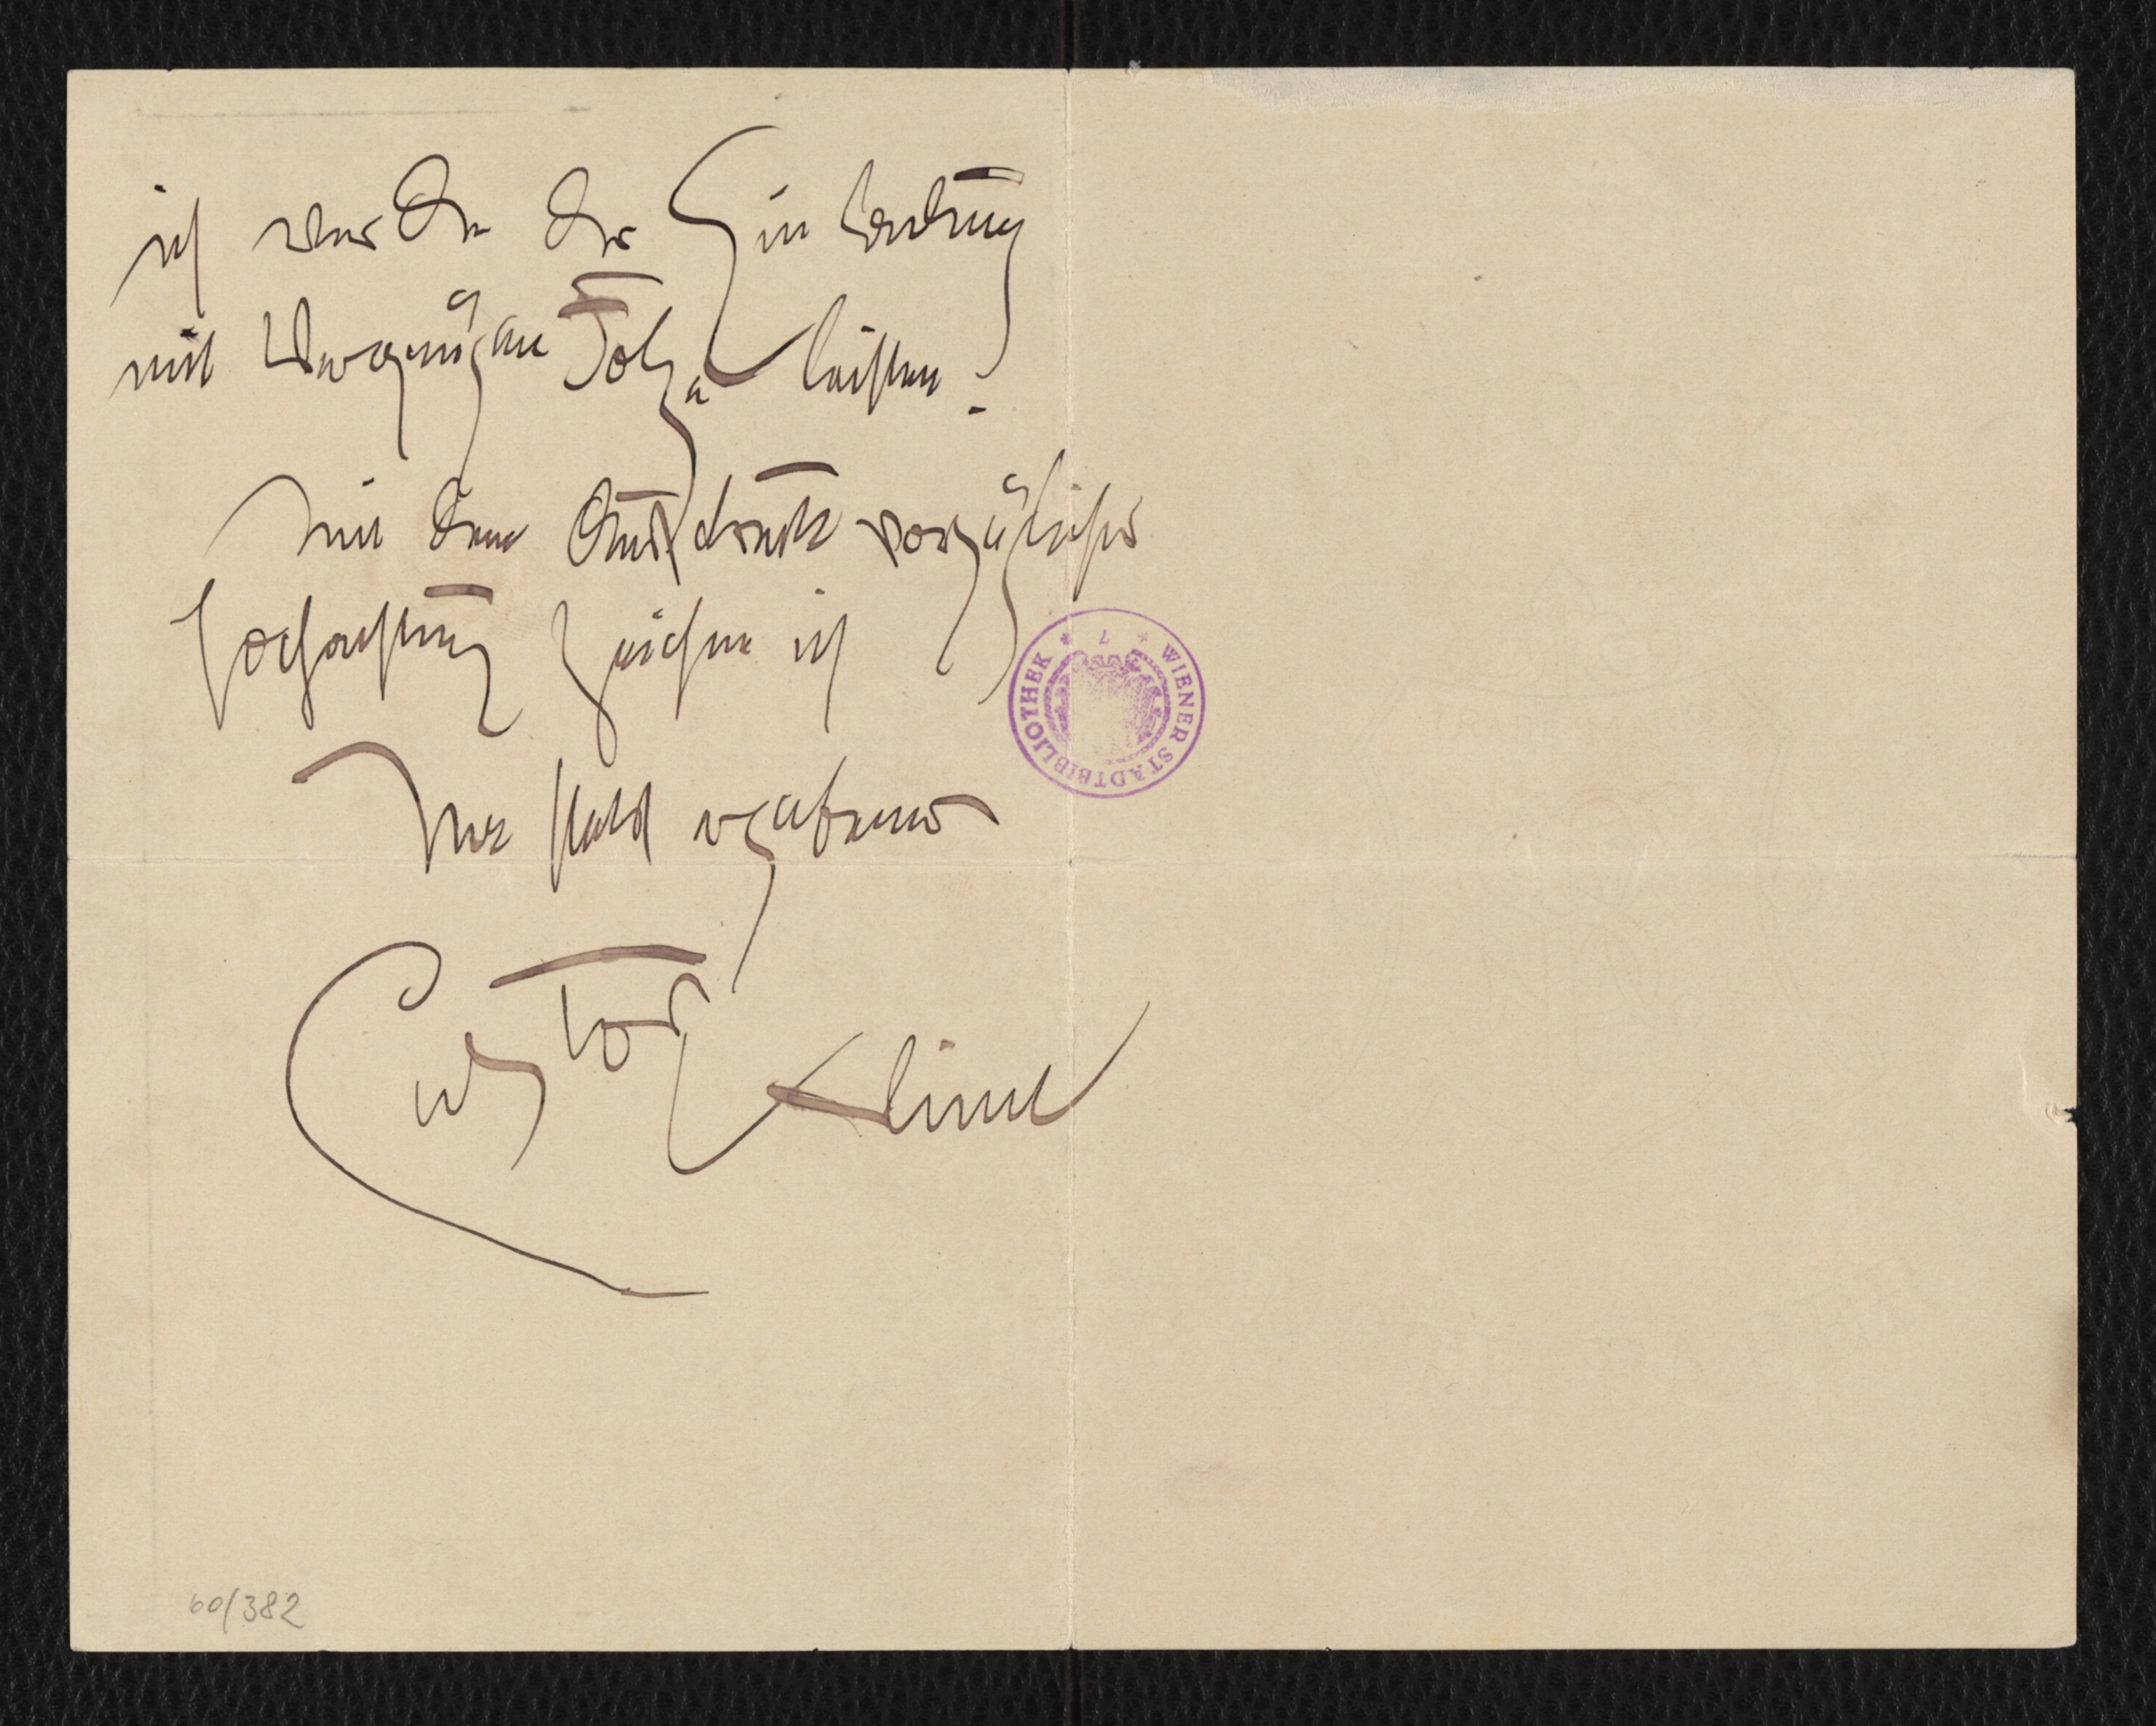 ich werde der Einladung
mit Vergnügen Folge leisten.
Mit dem Ausdruck vorzüglicher
Hochachtung zeichne ich
Ihr stets ergebener
Gustav Klimt
WIENER STADTBIBLIOTHEK
60/382